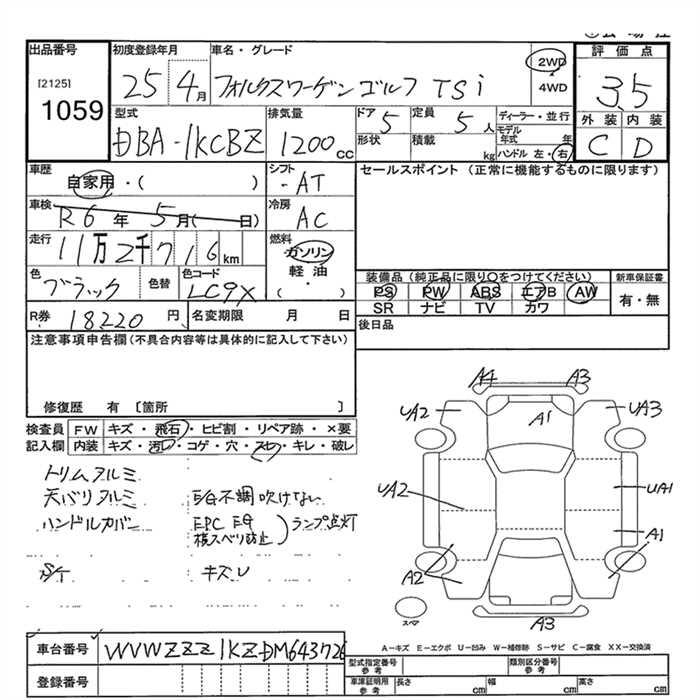 出品番号 初度登録年月 車名・グレード 評価点
[2125] 25 4月 フォルクスワーゲン ゴルフ TSi 2WD・4WD 3.5
1059 型式 排気量 ドア 定員 ディーラー・並行 外装 内装
DBA-1KCBZ 1200cc 5 5人 モデル年式 年 C D
形状 積載 kg ハンドル 左・右
車歴 シフト セールスポイント (正常に機能するものに限ります)
自家用・( ) -AT
車検 冷房
R6年 5月( 日) AC
走行 燃料
11万2千716km ガソリン
色 色替 色コード 軽油 装備品 (純正品に限り〇をつけてください) 新車保証書
ブラック LC9X ・( ) PS PW ABS エアB AW 有・無
SR ナビ TV カワ
R券 18220円 名変期限 月 日 後日品
注意事項申告欄(不具合内容等は具体的に記入して下さい)
修復歴 有 〔箇所 〕
検査員 FW キズ・飛石・ヒビ割・リペア跡・×要
記入欄 内装 キズ・汚レ・コゲ・穴・スレ・キレ・破レ
A4 A3
UA2 A1 UA3
トリムヌルミ
天バリヌルミ E/G不調吹けない
ハンドルカバー EPC EG
横スベリ防止 ランプ点灯
キズU
UA2 UA1
A1
A2
スペア A3
A-キズ E-エクボ U-凹み W-補修跡 S-サビ C-腐食 XX-交換済
車台番号 WVWZZZ1KZDM643726
型式指定番号 参考 類別区分番号 参考
登録番号 車庫証明用 参考 長さ cm 幅 cm 高さ cm